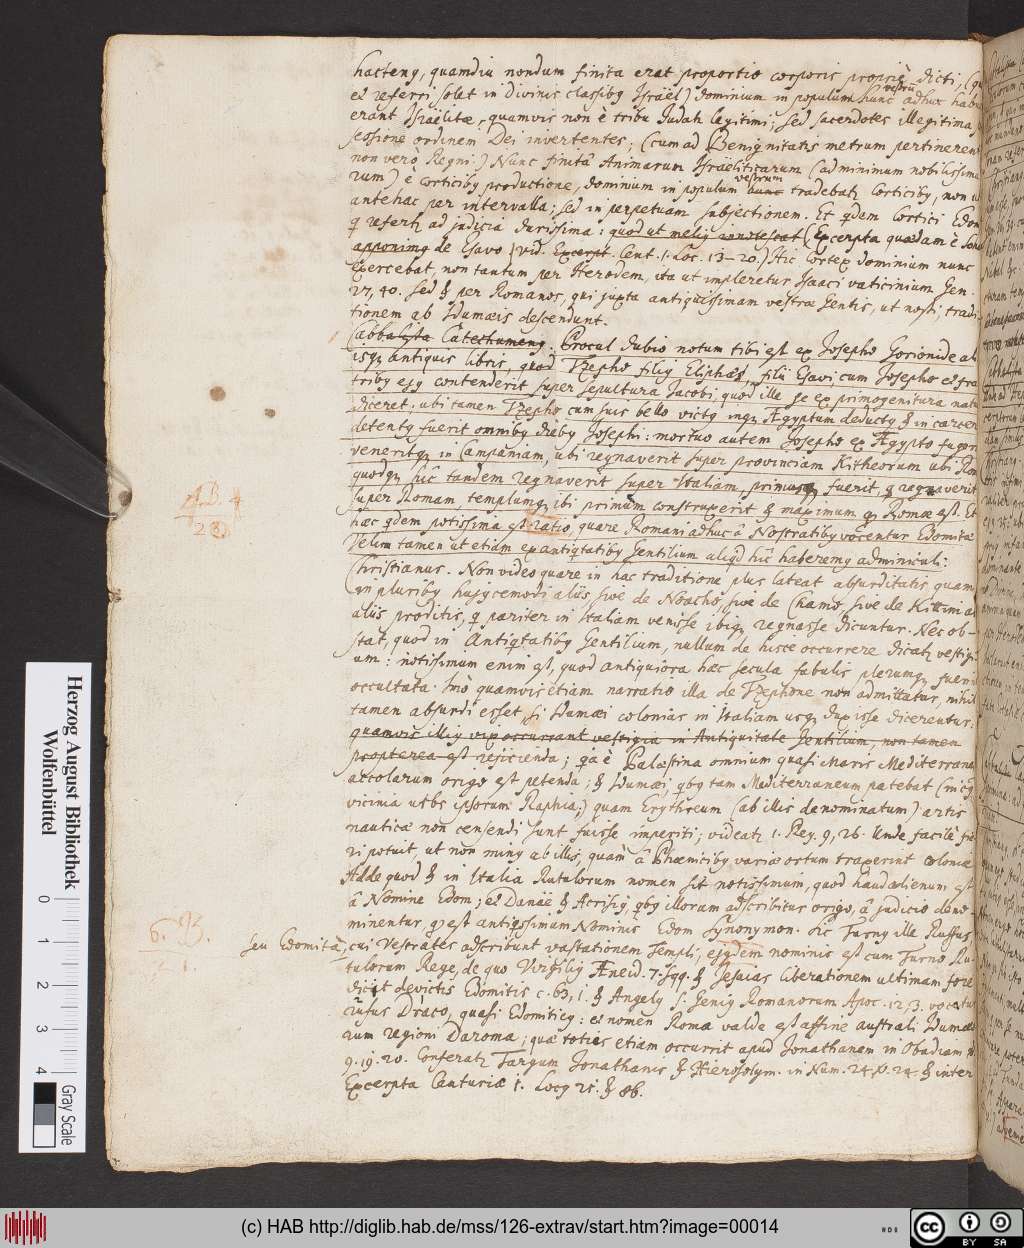 hactenq, quamdiu nondum finita erat proportio corporis propriè dicti, (q
et referri solet in divinis classibq Israël) dominium in populum hunc vestrũ adhuc hab
erant Israëlitæ, quamvis non è tribu Judah legitimi; sed sacerdotes illegitima,
sessione ordinem Dei invertentes; (cum ad Benignitatis metrum pertineren
non verò Regni.) Nunc finitâ Animarum Israëliticarum (ad minimum nobilissima
rum) è Corticibq productione, dominium in populum hunc vestrum tradebatr Corticibq, non
antehac per intervalla; sed in perpetuam subjectionem. Et qdem Cortici Edom
q refertr ad judicia durissima: quod ut meliq innotescat (Excerpta quædam è
apponimq de Esavo (vid. Excerpt. Cent. 1. Loc. 13–20.) Hic Cortex dominium nunc
exercebat, non tantum per Herodem, ita ut impleretur Isaaci vaticinium Gen.
27,40. sed & per Romanos, qui juxta antiquissimam vestræ Gentis, ut nosti, tradi-
tionem ab Idumæis descendunt.
Cabbalista Catechumenq. Procul dubio notum tibi est ex Josepho Gorionide al
isq, antiquis libris, quod Tzepho filiq Eliphas, filii Esavi, cum Josepho et fra
tribq ejq contenderit super sepultura Jacobi, quod ille se ex primogenitura natu
diceret: ubi tamen Tzepho cum suis bello victq inq, Ægyptum deductq & in carcere
detentq fuerit omnibq diebq Josephi: mortuo autem Josepho ex Ægypto fugeri
veneritq, in Campaniam, ubi regnaverit super provinciam Kitheorum ubi Ro
quodq, hîc tandem regnaverit super Italiam, primusq, fuerit, q regnaverit
super Romam, templumq, ibi primum construxerit & maximum q, Romæ est. Et
hæc qdem potissima est ratio, quare Romani adhuc â Nostratibq vocentur Edomitæ
Velim tamen ut etiam ex antiqtatibq Gentilium aliqd hîc haberemq adminiculi:
Christianus. Non video quare in hac traditione plus lateat absurditatis, quam
in pluribq hujqcemodi aliis, sive de Noacho, sive de Chamo, sive de Kittim ac
aliis proditis, q pariter in Italiam venisse ibiq, regnasse dicuntur. Nec ob-
stat, quod in Antiqtatibq Gentilium, nullum de hisce occurrere dicatr vestigi-
um: notissimum enim est, quod antiquiora hæc secula fabulis plerumq, fuerin
occultata. Imò quamvis etiam narratio illa de Tzephone non admittatur, nihil
tamen absurdi esset, si Idumæi colonias in Italiam usq, duxisse dicerentur:
quamvis illiq vix occurrant vestigia in Antiquitate Gentilium, non tamen
propterea est rejicienda; qa è Palæstina omnium quasi Maris Mediterranei
accolarum origo est petenda; & Idumæi, qbq tam Mediterraneum patebat (sicq
vicinia urbs ipsorum Raphia,) quam Erythræum (ab illis denominatum) artis
nauticæ non censendi sunt fuisse imperiti; videatr 1. Reg. 9, 26. Unde facilè fie
ri potuit, ut non minq ab illis, quam â Phœnicibq variæ ortum traxerint coloniæ
Adde quod & in Italia Rutulorum nomen sit notissimum, quod haud alienum est
â Nomine Edom; et Danae & Acrisiq, qbq illorum adscribitur origo, â judicio deno-
minentur, q est antiqssimum Nominis Edom Synonymon. Sic Turnq ille Ruffus,
seu Edomita, cui Vestrates adscribunt vastationem Templi, ejqdem nominis est cum Turno Ru-
tulorum Rege, de quo Virgiliq Æneid. 7. sqq. & Jesaias liberationem ultimam fore
dicit devictis Edomitis c. 63, 1. & Angelq s. Geniq Romanorum Apoc. 12, 3. vocatur
rufus Draco, quasi Edomiticq: et nomen Roma valde est affine australi Idumæo
rum regioni Daroma; quæ toties etiam occurrit apud Jonathanem in Obadiam
9. 19. 20. Conferatr Targum Jonathanis & Hierosolym. in Num. 24, v. 24 & inter
Excerpta Centuriæ 1. Locq 25. & 86.
A. B.
28
6. B.
21.
Herzog August Bibliothek
Wolfenbüttel
0 1 2 3 4
Gray Scale
(c) HAB http://diglib.hab.de/mss/126-extrav/start.htm?image=00014
cc BY SA